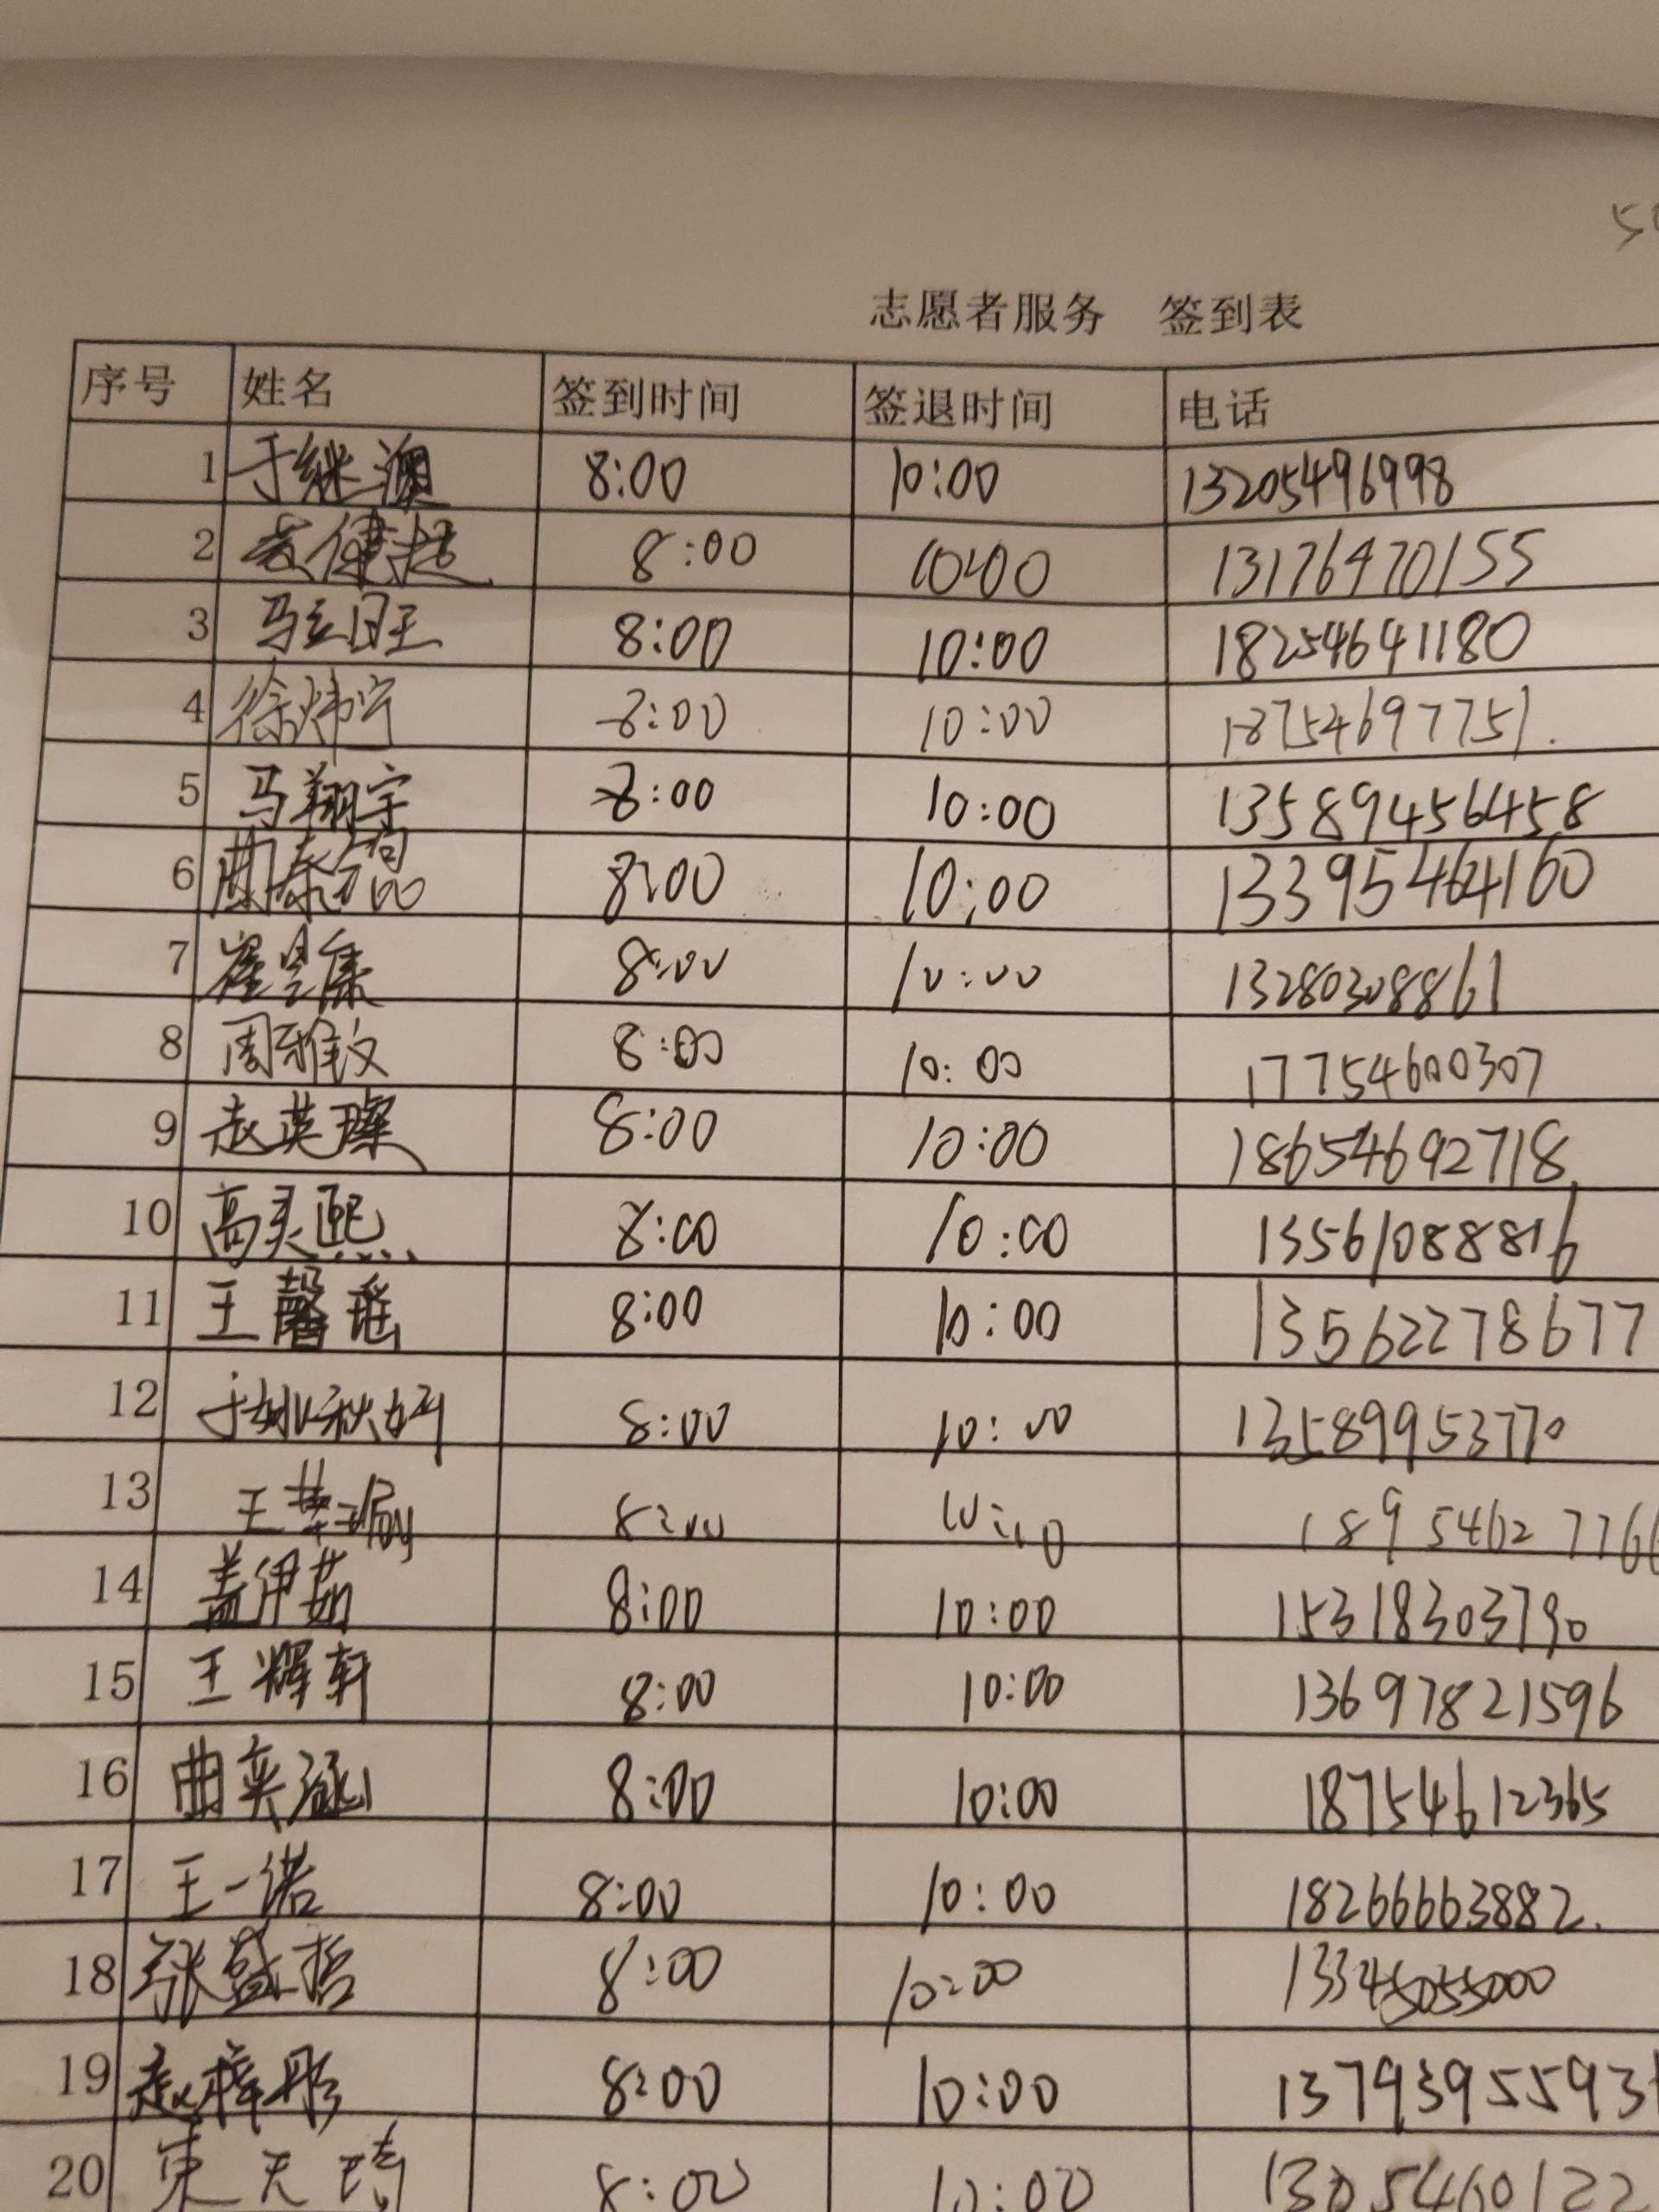 志愿者服务 签到表
序号 姓名 签到时间 签退时间 电话
1 于继澳 8:00 10:00 13205496998
2 8:00 10:00 13176470155
3 马立日王 8:00 10:00 18254641180
4 徐炜宁 8:00 10:00 18754697751.
5 马翔宇 8:00 10:00 13589456458
6 8:00 10:00 13395464160
7 崔昱康 8:00 10:00 13280308861
8 周雅文 8:00 10:00 17754600307
9 赵英璨 8:00 10:00 18654692718
10 高灵熙 8:00 10:00 13561088816
11 王馨瑶 8:00 10:00 13562278677
12 于姚秋妤 8:00 10:00 13589953770
13 8:00 10:00
14 盖伊茹 8:00 10:00 15318303790
15 王辉轩 8:00 10:00 13697821596
16 曲奕涵 8:00 10:00 18754612365
17 王一诺 8:00 10:00 18266663882.
18 张盛哲 8:00 10:00 13345055000
19 赵梓彤 8:00 10:00
20 8:00 10:00